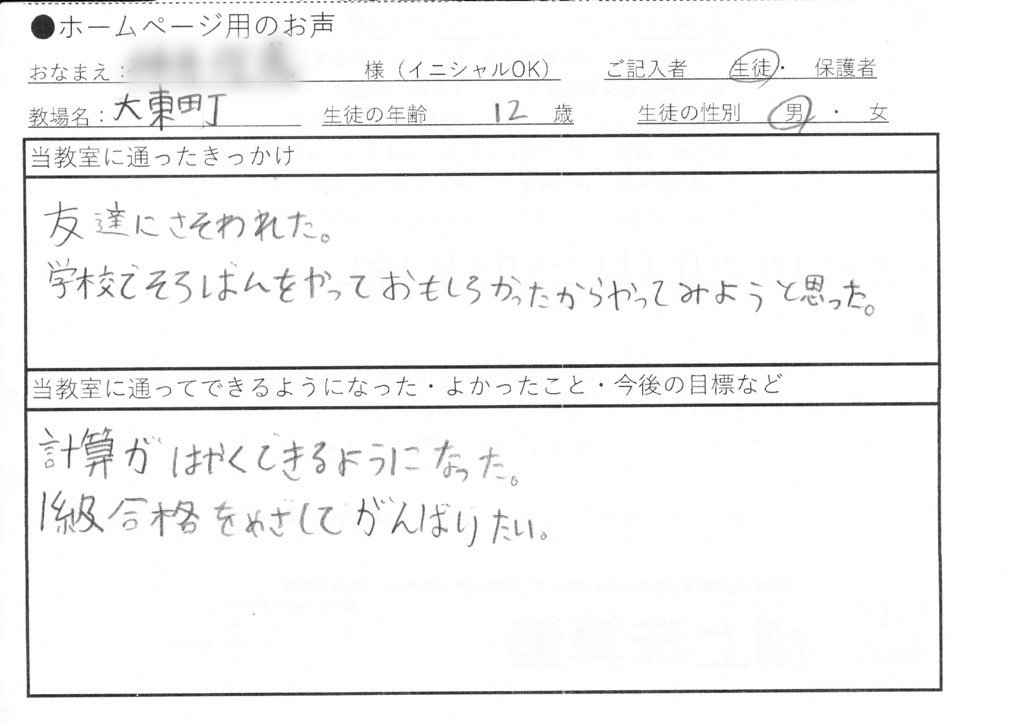 ●ホームページ用のお声
おなまえ： 様（イニシャルOK） ご記入者 生徒・ 保護者
教場名：大東町 生徒の年齢 12 歳 生徒の性別 男 ・ 女
当教室に通ったきっかけ
友達にさそわれた。
学校でそろばんをやっておもしろかったからやってみようと思った。
当教室に通ってできるようになった・よかったこと・今後の目標など
計算がはやくできるようになった。
1級合格をめざしてがんばりたい。